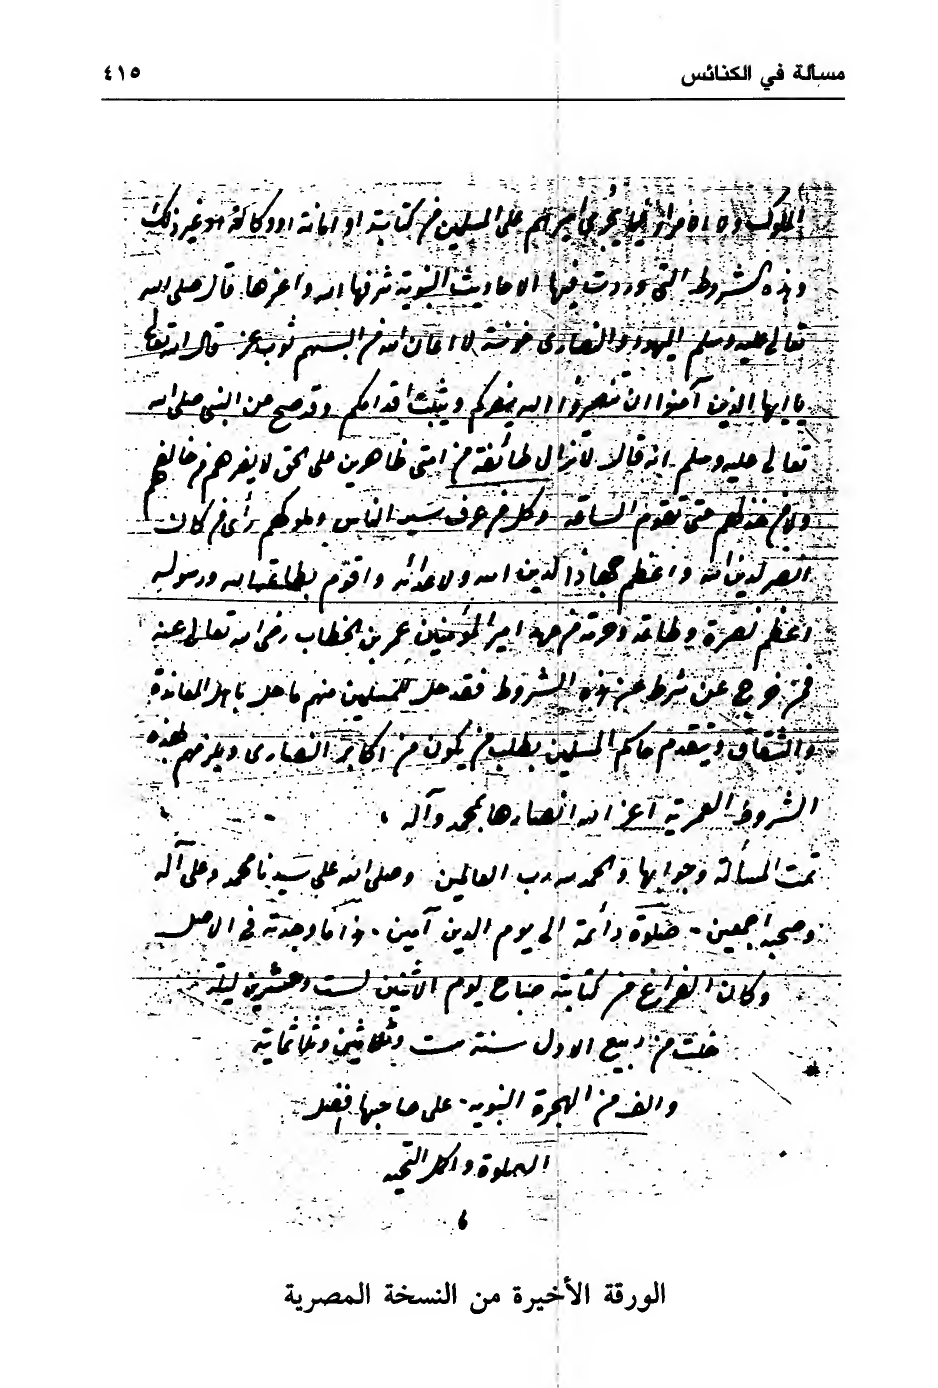 مسألة في الكنائس ٤١٥
الملوك ولا الامراء فيما يجري امرهم على المسلمين من كتابة او امانة او وكالة او غير ذلك
وهذه الشروط التي وردت فيها الاحاديث النبوية شرفها الله واعزها قال صلى الله
تعالى عليه وسلم اليهود والنصارى خونة لا اعان الله من البسهم ثوب عز قال الله تعالى
يا ايها الذين آمنوا ان تنصروا الله ينصركم ويثبت اقدامكم وقد صح عن النبي صلى الله
تعالى عليه وسلم انه قال لا تزال طائفة من امتي ظاهرين على الحق لا يضرهم من خالفهم
ولا من خذلهم حتى تقوم الساعة وكل من عرف سير الناس وملوكهم رأى من كان
انصر لدين الله واعظم جهادا لدين الله ولاعدائه واقوم بطاعة الله ورسوله
اعظم نصرة وطاعة وحرمة من عهد امير المؤمنين عمر بن الخطاب رضي الله تعالى عنه
فمن خرج عن شرط من هذه الشروط فقد حل للمسلمين منهم ما حل باهل المعاندة
والشقاق ويتقدم حاكم المسلمين بطلب من يكون من اكابر النصارى ويلزمهم بهذه
الشروط العمرية اعز الله انصارها بمحمد وآله
تمت المسألة وجوابها والحمد لله رب العالمين وصلى الله على سيدنا محمد وعلى آله
وصحبه اجمعين صلوة دائمة الى يوم الدين آمين هذا ما وجدته في الاصل
وكان الفراغ من كتابته صباح يوم الاثنين لست وعشرين ليلة
خلت من ربيع الاول سنة ست وثلاثين وثلاثماية
والف من الهجرة النبوية على صاحبها افضل
الصلوة واكمل التحية
الورقة الأخيرة من النسخة المصرية